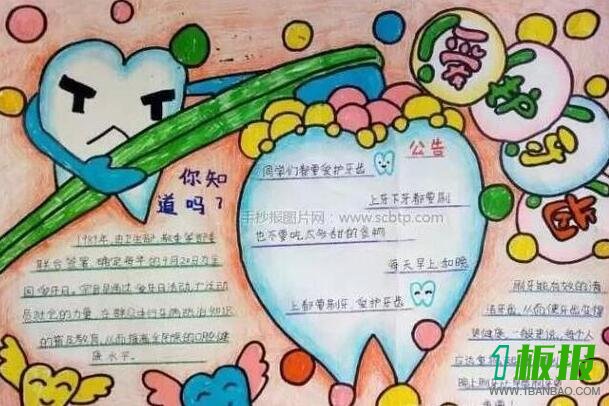 爱护牙齿
你知
道吗?
1989年,由卫生部、教委等部委
联合签署,确定每年的9月20日为全
国爱牙日。宗旨是通过爱牙日活动,广泛动
员社会的力量,在群众进行牙病防治知识
的普及教育,从而提高全民族的口腔健
康水平。
公告
同学们都要爱护牙齿
上牙下牙都要刷
手抄报图片网:www.scbtp.com
也不要吃太多甜的食物
每天早上和晚
上都要刷牙,爱护牙齿
刷牙能有效的清
洁牙齿,从而使牙齿变得
更健康。一般来说,每个人
应该
晚上刷牙
1板报
WWW.1BANBAO.COM